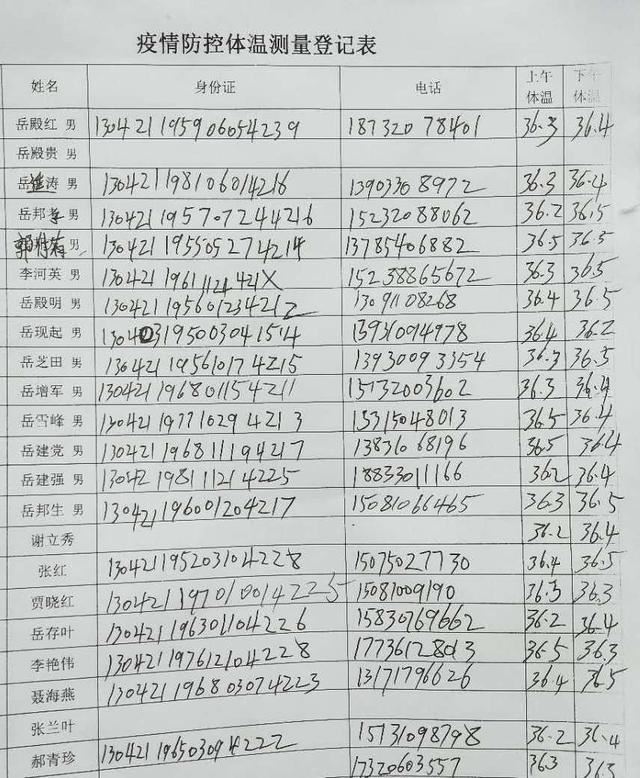 疫情防控体温测量登记表
姓名 身份证 电话 上午体温 下午体温
岳殿红 男 130421195906054239 18732078401 36.3 36.4
岳殿贵 男
岳 涛 男 130421198106014216 13903308972 36.3 36.4
岳邦 男 130421195707244216 15232088062 36.2 36.5
男 130421195505274214 13785406882 36.5 36.5
李河英 男 15238865672 36.3 36.5
岳殿明 男 130421195601234212 13091108268 36.4 36.5
岳现起 男 130403195003041514 13931014978 36.4 36.2
岳芝田 男 130421195610174215 13930093354 36.3 36.5
岳增军 男 130421196801154211 15132003602 36.3 36.4
岳雪峰 男 130421197710294213 15315048013 36.5 36.4
岳建党 男 130421196811194217 13831068196 36.5 36.4
岳建强 男 13042198111214225 18833011166 36.2 36.4
岳邦生 男 130421196001204217 15081066465 36.3 36.5
谢立秀 36.2 36.4
张红 130421195203104228 15075027730 36.4 36.5
贾晓红 130421197010014225 15081009190 36.5 36.3
岳存叶 130421196301104226 15830769662 36.2 36.4
李艳伟 130421197612104228 17736128013 36.5 36.3
聂海燕 130421196803074223 13171796626 36.4 36.5
张兰叶 15131098798 36.2 36.4
郝青珍 130421196503094222 17320603557 36.3 36.5